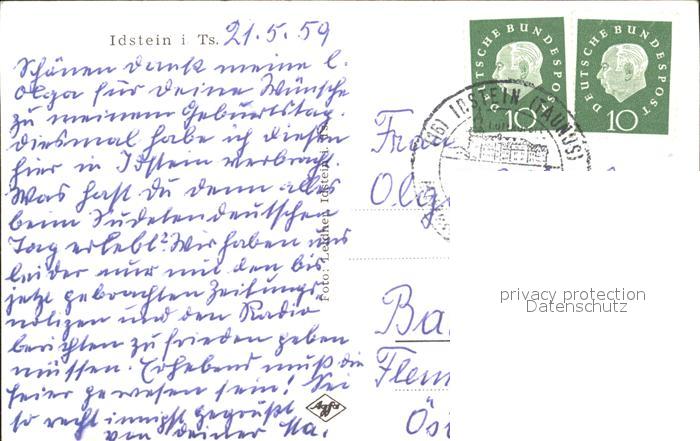 Idstein i. Ts. 21.5.59
Schönen Dank meine l.
Olga für deine Wünsche
zu meinem Geburtstag.
diesmal habe ich diesen
hier in Idstein verbracht.
Was hast du denn alles
beim Sudetendeutschen
Tag erlebt? Wir haben uns
leider nur mit den bis
jetzt gebrachten Zeitungs
notizen und den Radio
berichten zufrieden geben
müssen. Erhebend muß die
Feier gewesen sein! Sei
so recht innigst gegrüßt
von deiner
Foto: Leidner Idstein i. Ts.
Agfa
DEUTSCHE BUNDESPOST
10
DEUTSCHE BUNDESPOST
10
(16) IDSTEIN (TAUNUS)
Frau
Olg
Ba
Flem
Öst
privacy protection
Datenschutz